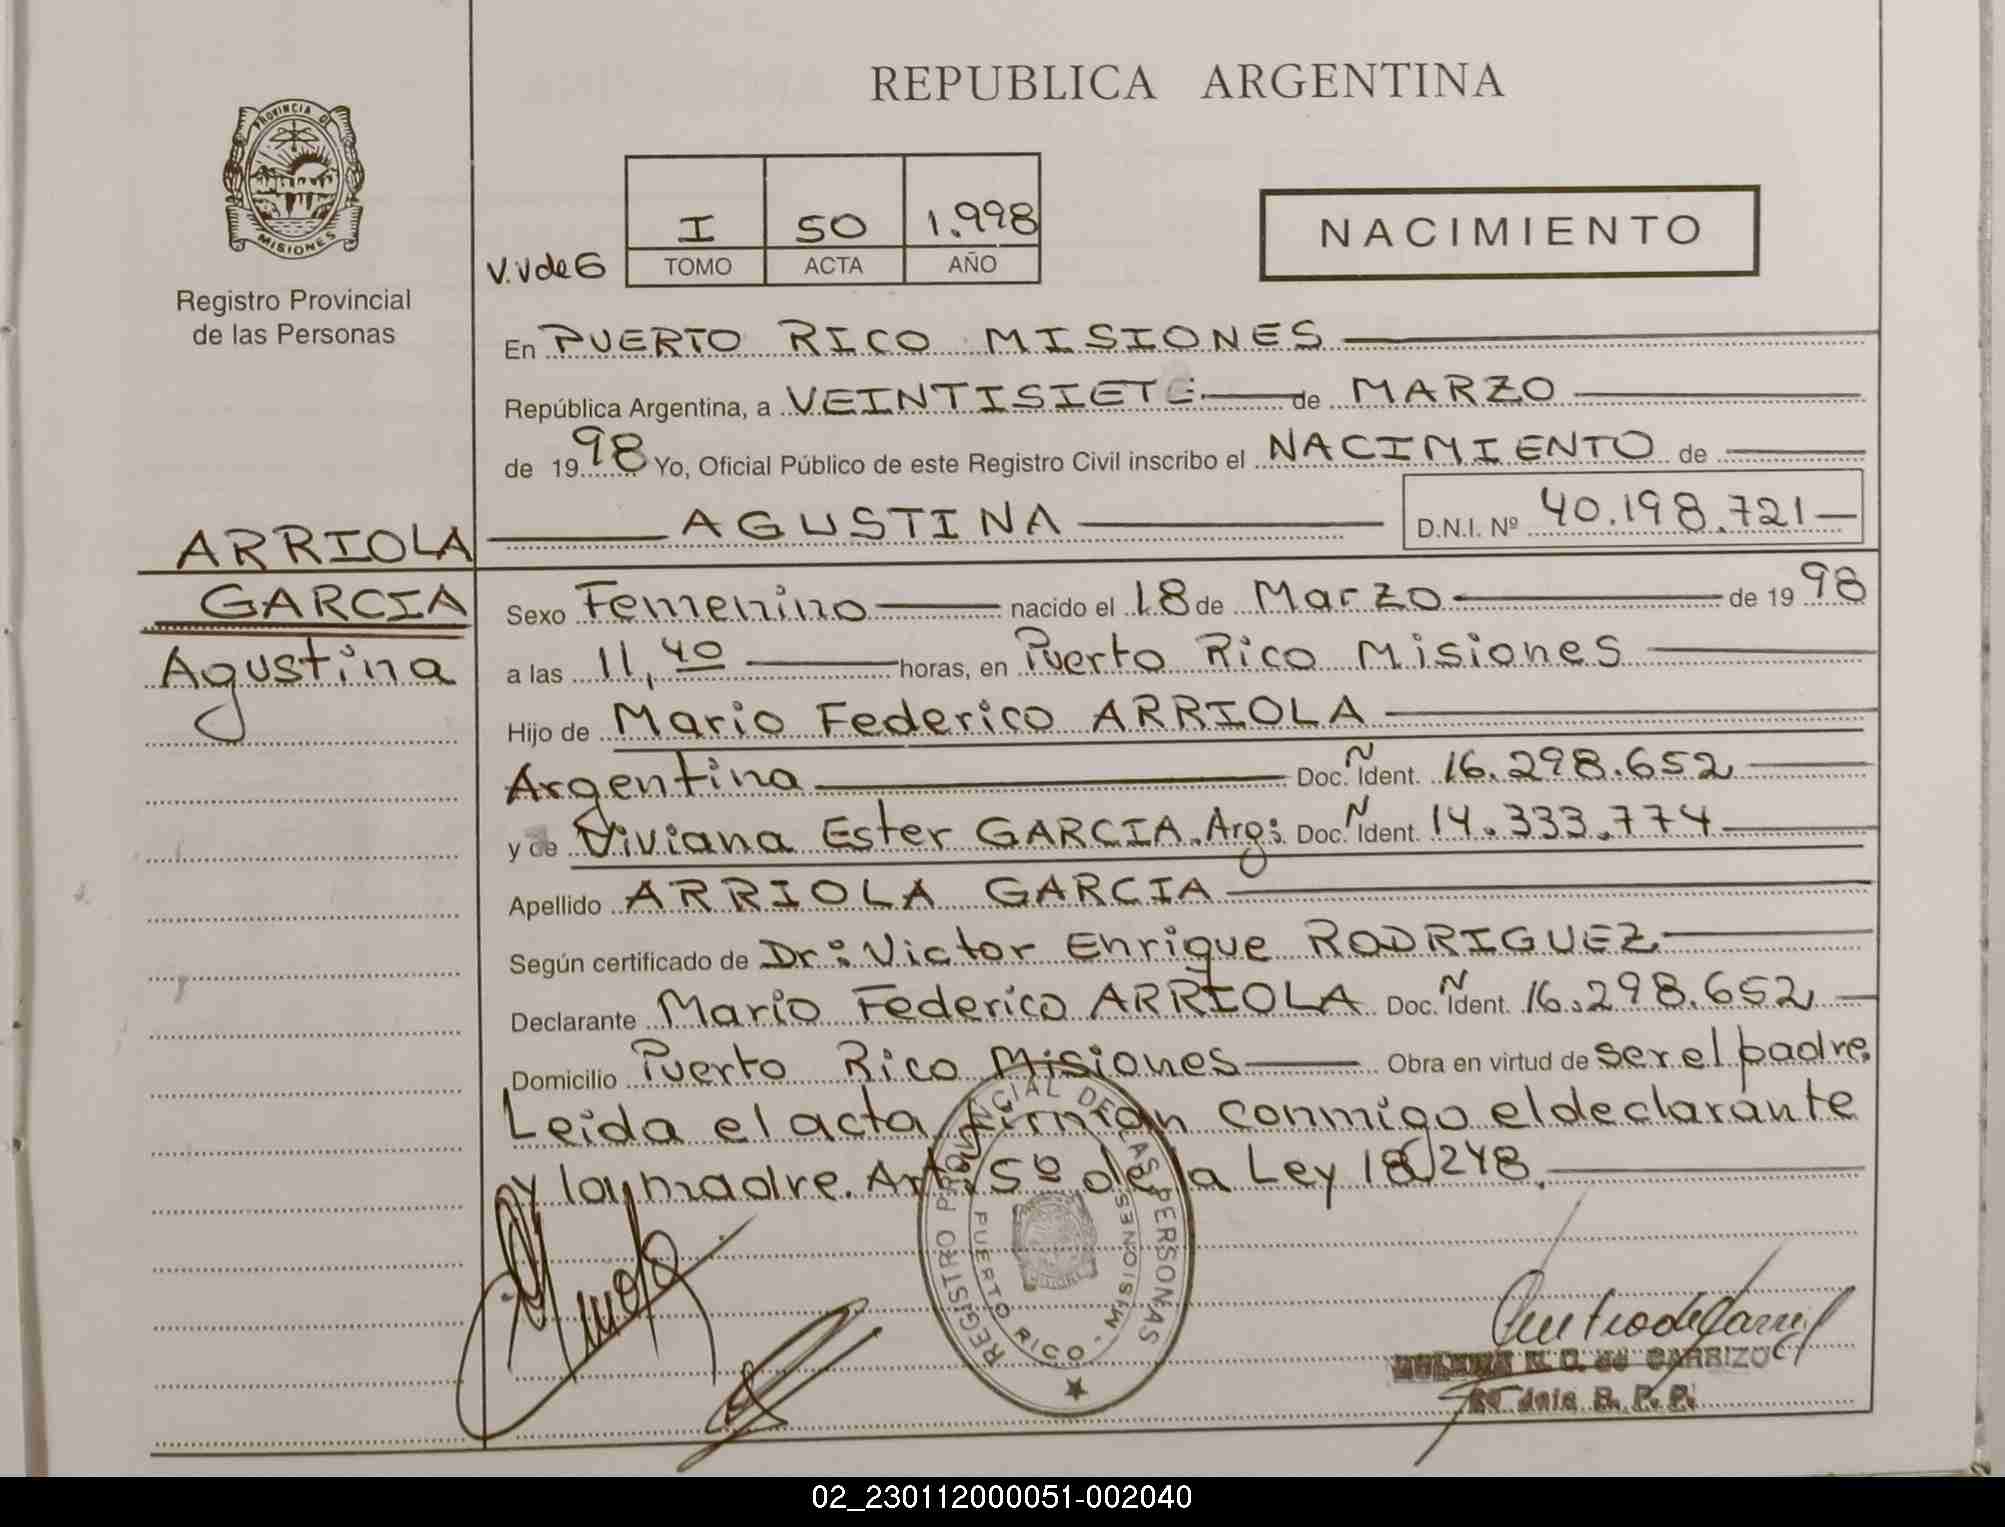 REPUBLICA ARGENTINA
PROVINCIA DE
MISIONES
Registro Provincial
de las Personas
V.V de 6
I SO 1.998
TOMO ACTA AÑO
NACIMIENTO
En PUERTO RICO MISIONES
República Argentina, a VEINTISIETE de MARZO
de 1998 Yo, Oficial Público de este Registro Civil inscribo el NACIMIENTO de
AGUSTINA D.N.I. Nº 40.198.721
ARRIOLA
GARCIA
Agustina
Sexo Femenino nacido el 18 de Marzo de 1998
a las 11,40 horas, en Puerto Rico Misiones
Hijo de Mario Federico ARRIOLA
Argentina Doc. Ñ Ident. 16.298.652
y de Viviana Ester GARCIA. Arg: Doc. Ñ Ident. 14.333.774
Apellido ARRIOLA GARCIA
Según certificado de Dr: Victor Enrique RODRIGUEZ
Declarante Mario Federico ARRIOLA Doc. Ñ Ident. 16.298.652
Domicilio Puerto Rico Misiones Obra en virtud de ser el padre.
Leida el acta, firman conmigo el declarante
y la madre. Art. 5º de la Ley 18.248.
REGISTRO PROVINCIAL DE LAS PERSONAS
PUERTO RICO - MISIONES
de CARRIZO
R. P. P.
02_230112000051-002040